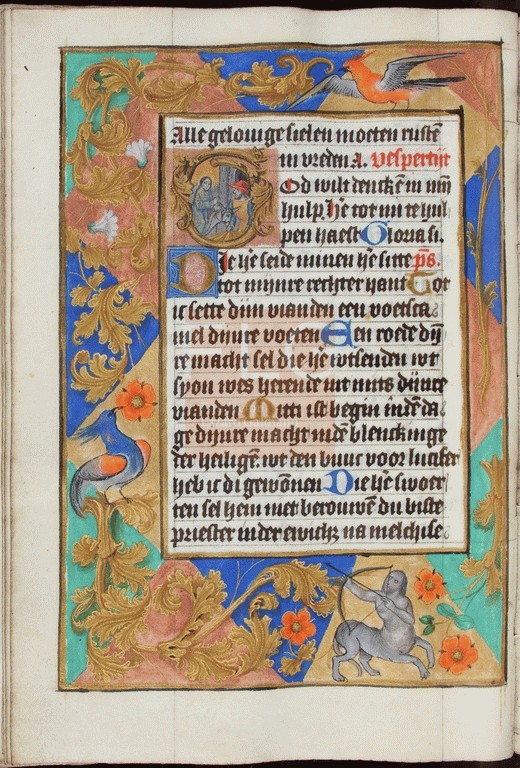 Alle gelouige sielen moeten rustē
in vreden A. Vespertijt
God wilt dencken in mijn
hulp. Hē tot mi te hul
pen haest Gloria si.
Die hē seide minen hē sitte ps.
tot mijnre rechter hant Tot
ic sette dijn vianden een voetsca
mel dijnre voeten Een roede dijn
re macht sel die hē wtsenden wt
syon wes herende int mits dijnre
vianden Mitti ist begin indē da
ge dijnre macht indē blenckinge
der heiligē. wt den buuc voor lucifer
heb ic di gewōnen Die hē swoer
ten sel hem niet berouwē du biste
priester inder ewichz na melchise